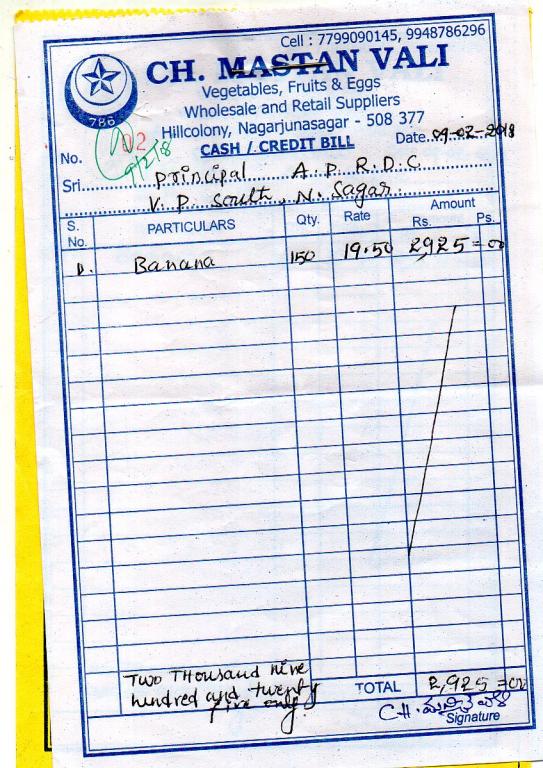 Cell : 7799090145, 9948786296
CH. MASTAN VALI
786
Vegetables, Fruits & Eggs
Wholesale and Retail Suppliers
Hillcolony, Nagarjunasagar - 508 377
No. 02 CASH / CREDIT BILL Date 09-02-2018
9/2/18
Sri Principal A.P.R.D.C.
V.P. South, N. Sagar.
S. No. PARTICULARS Qty. Rate Amount Rs. Ps.
1. Banana 150 19.50 2,925=00
Two Thousand nine
hundred and twenty
five only.
TOTAL 2,925=00
CH. మస్తాన్ వలి
Signature